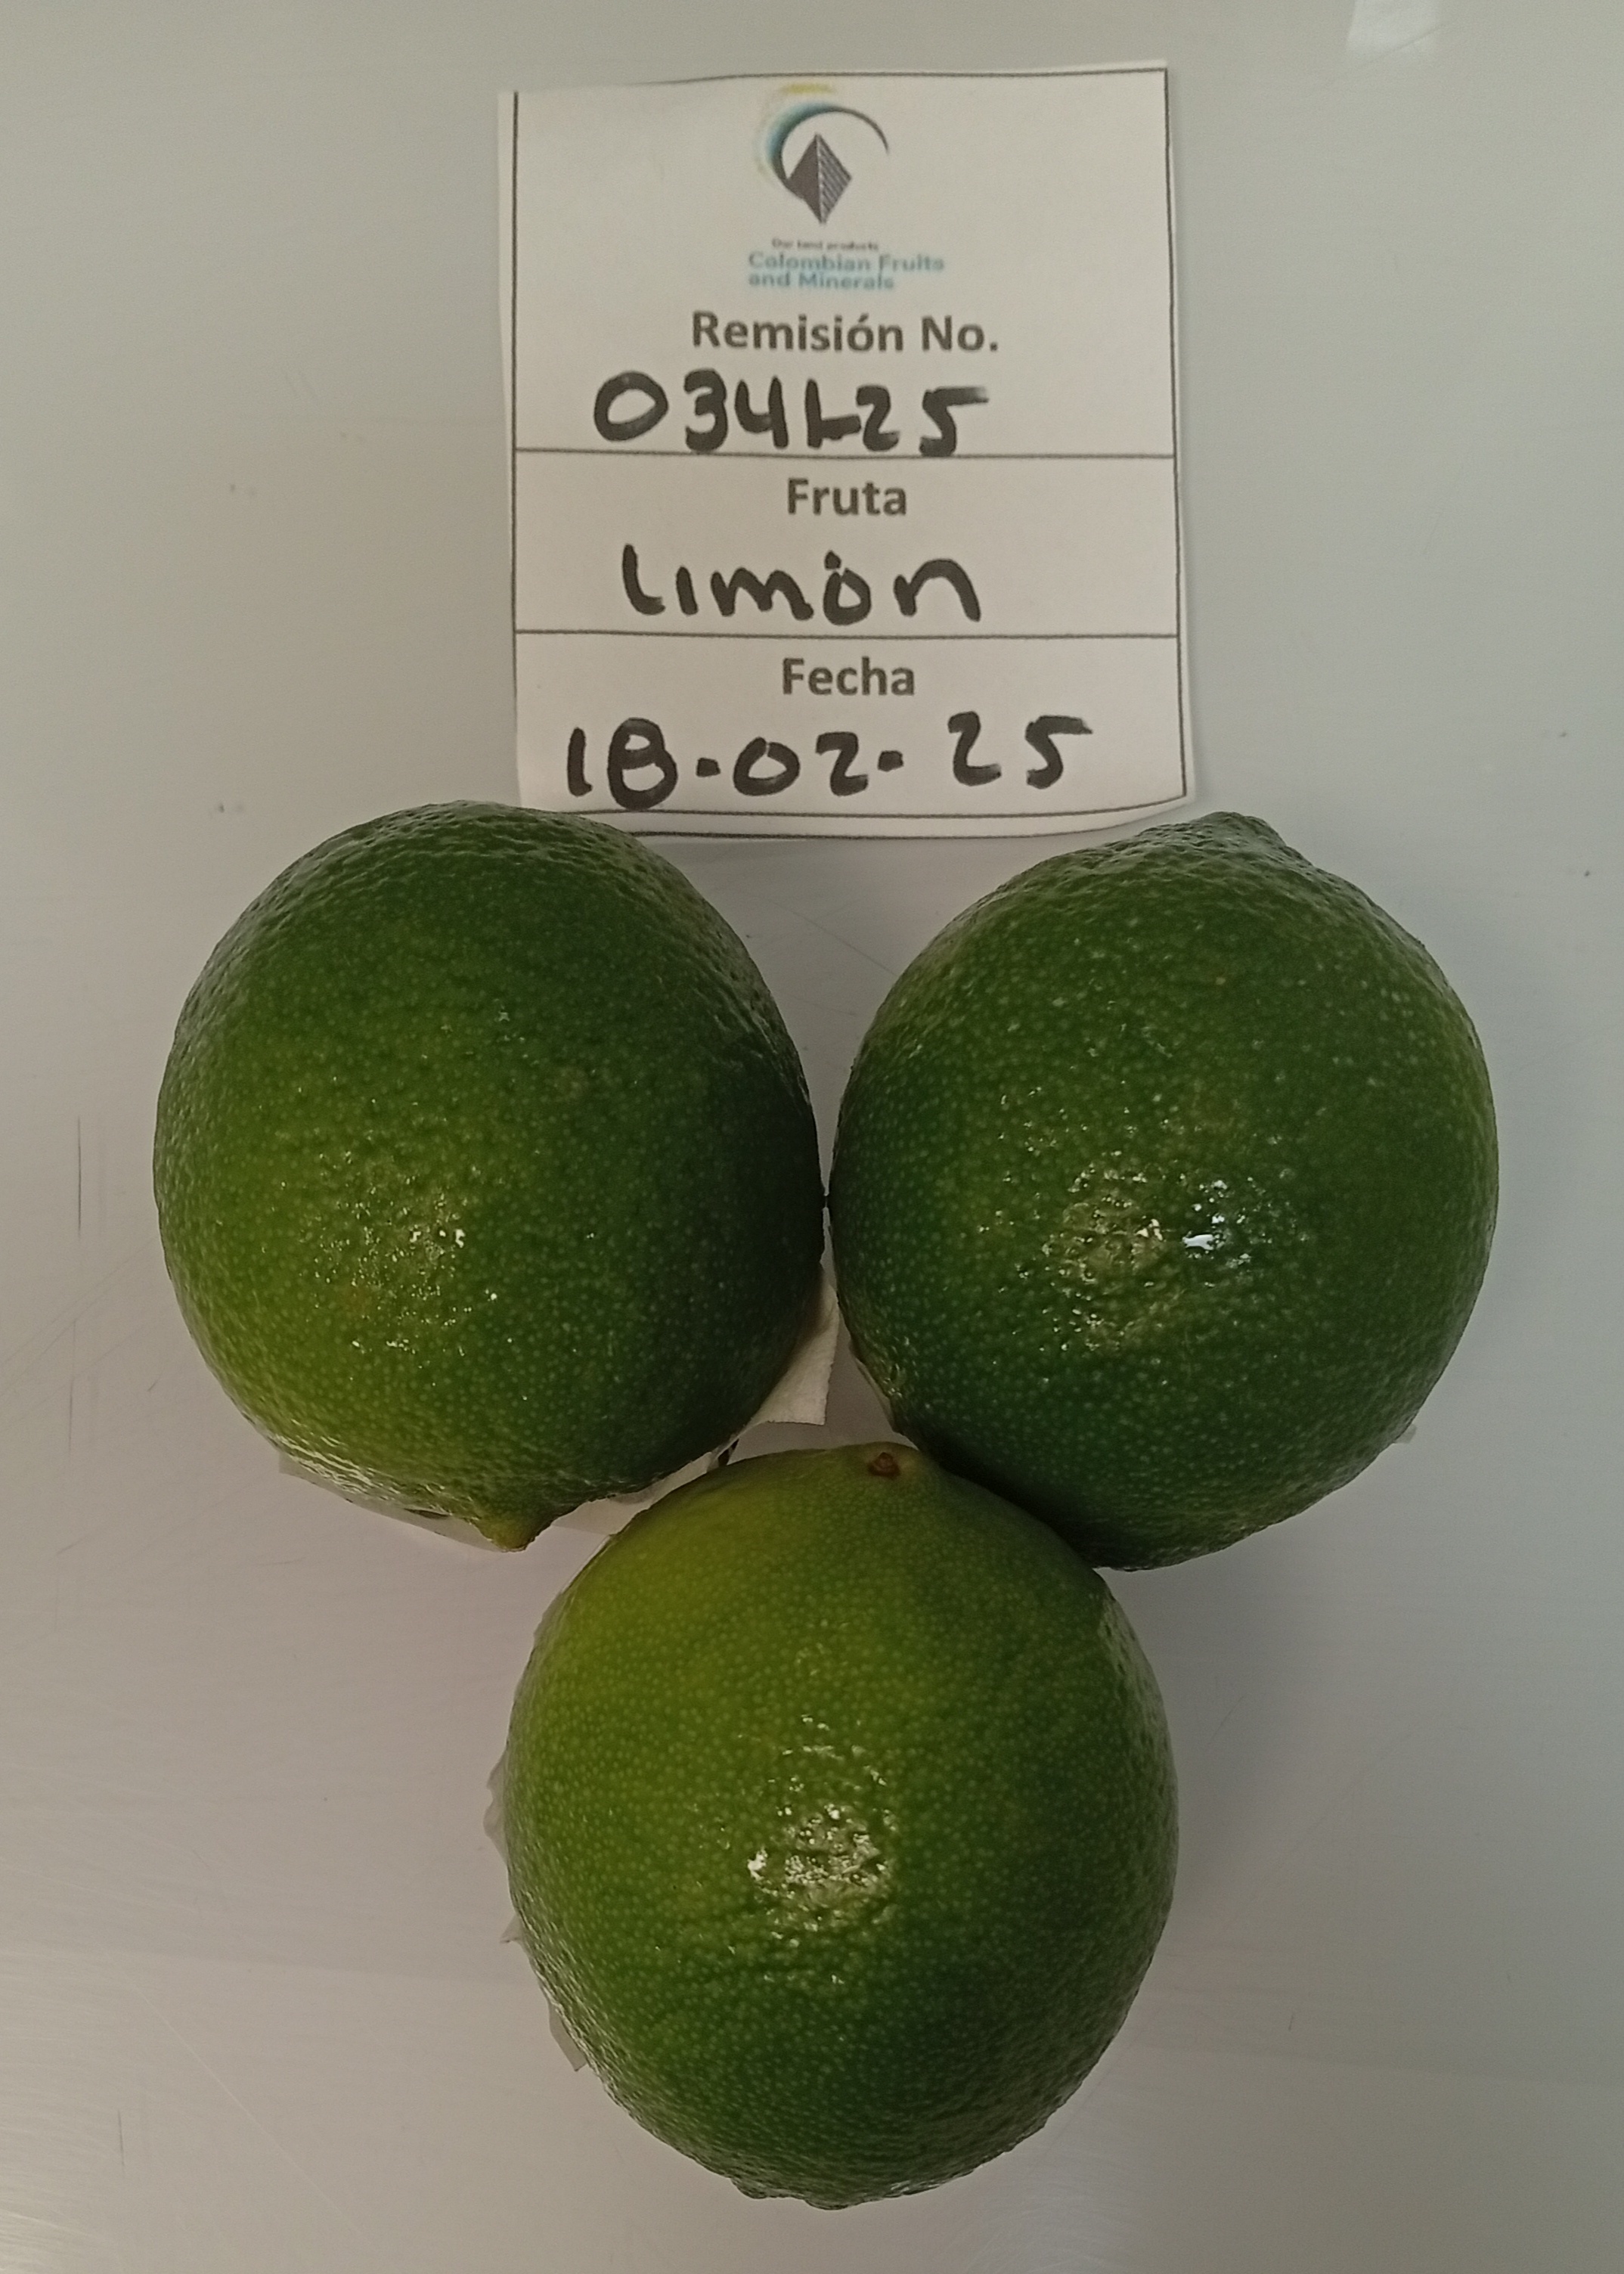 Our land products
Colombian Fruits
and Minerals
Remisión No.
034L25
Fruta
Limón
Fecha
18-02-25